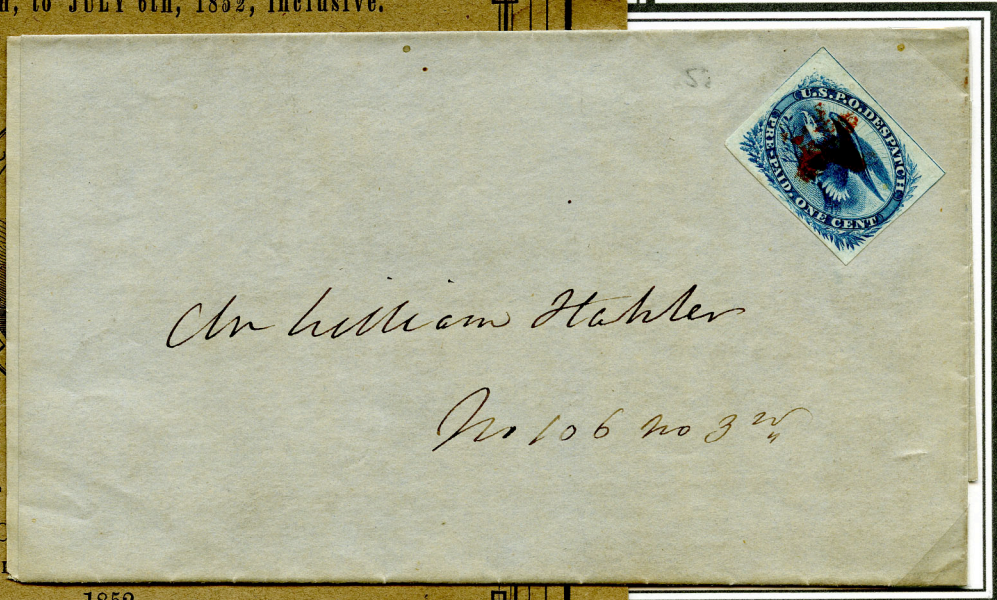 to JULY 6th, 1852, inclusive.
U.S.P.O. DESPATCH.
PRE-PAID. ONE CENT
Mr William Stahler
No 106 no 3rd
1852